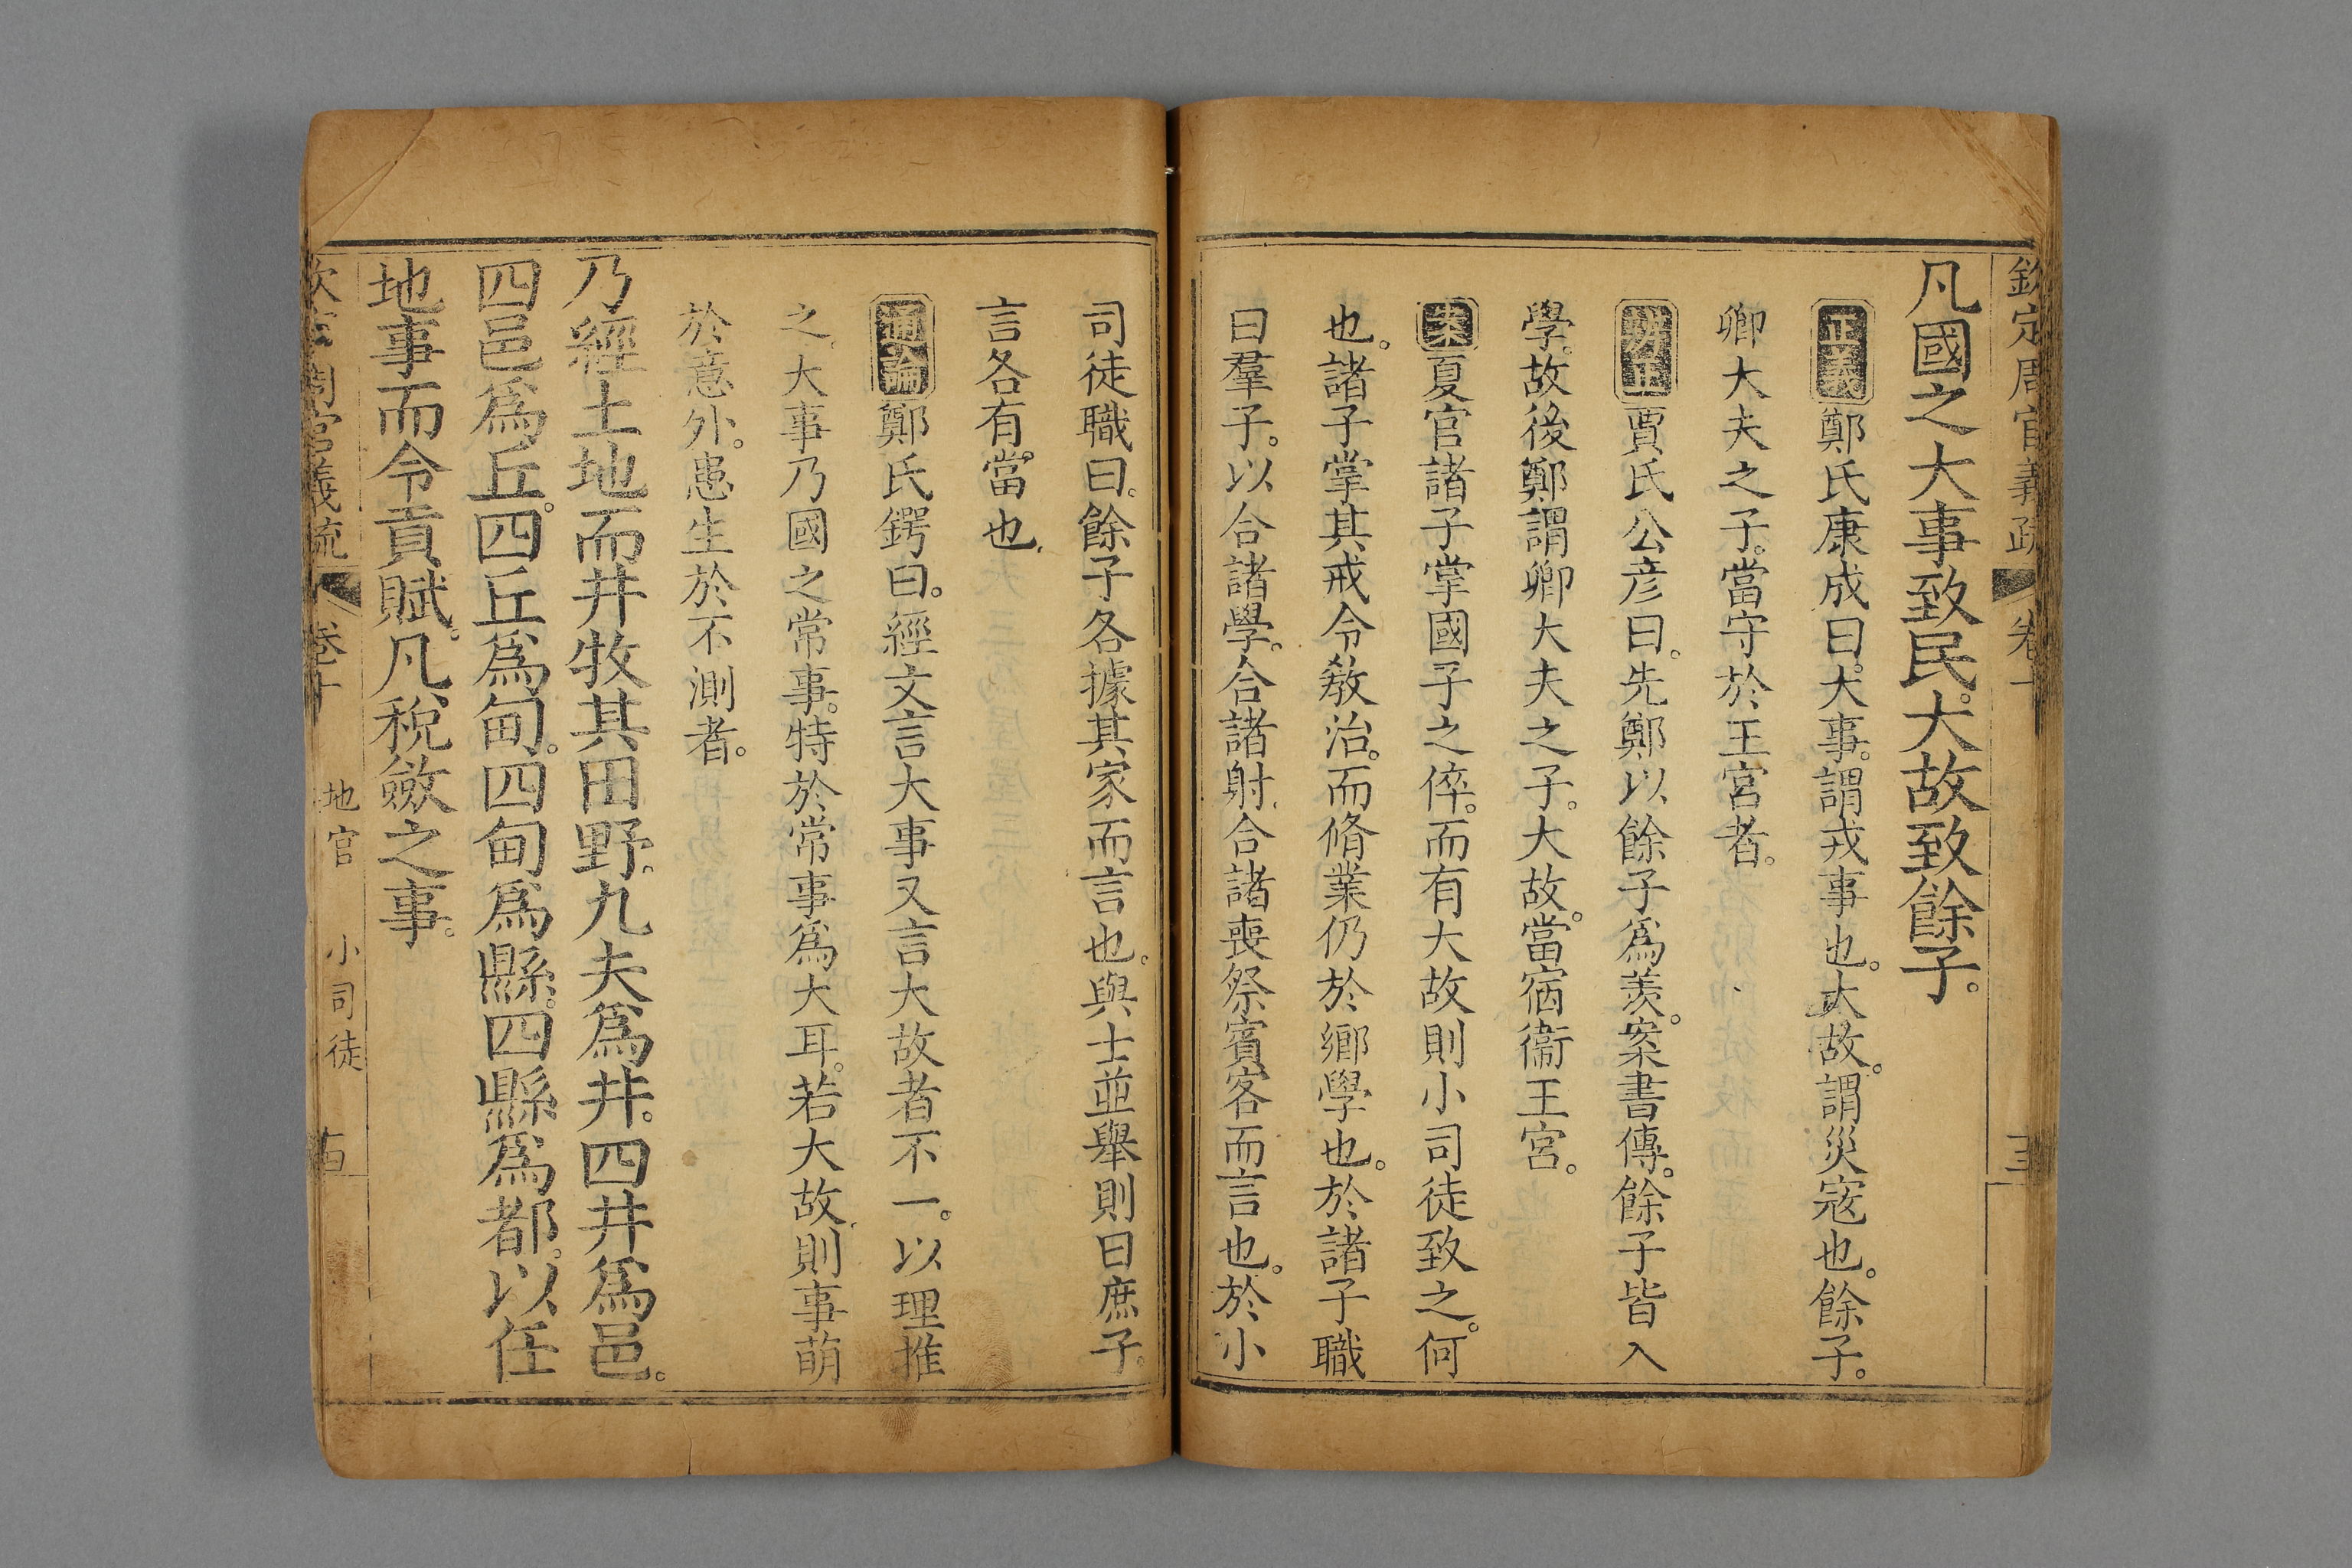 欽定周官義疏 卷十
凡國之大事致民。大故致餘子。
正義鄭氏康成曰。大事。謂戎事也。大故。謂災寇也。餘子。
卿大夫之子。當守於王宮者。
辨正賈氏公彦曰。先鄭以餘子爲羨。案書傳。餘子皆入
學。故後鄭謂卿大夫之子。大故。當宿衞王宮。
案夏官諸子掌國子之倅。而有大故則小司徒致之。何
也。諸子掌其戒令敎治。而脩業仍於鄉學也。於諸子職
曰羣子。以合諸學。合諸射。合諸喪祭賓客而言也。於小
司徒職曰。餘子各據其家而言也。與士並舉則曰庶子。
言各有當也。
通論鄭氏鍔曰。經文言大事又言大故者不一。以理推
之。大事乃國之常事。特於常事爲大耳。若大故。則事萌
於意外。患生於不測者。
乃經土地而井牧其田野。九夫爲井。四井爲邑。
四邑爲丘。四丘爲甸。四甸爲縣。四縣爲都。以任
地事而令貢賦。凡稅斂之事。
周官義疏 卷十 地官 小司徒